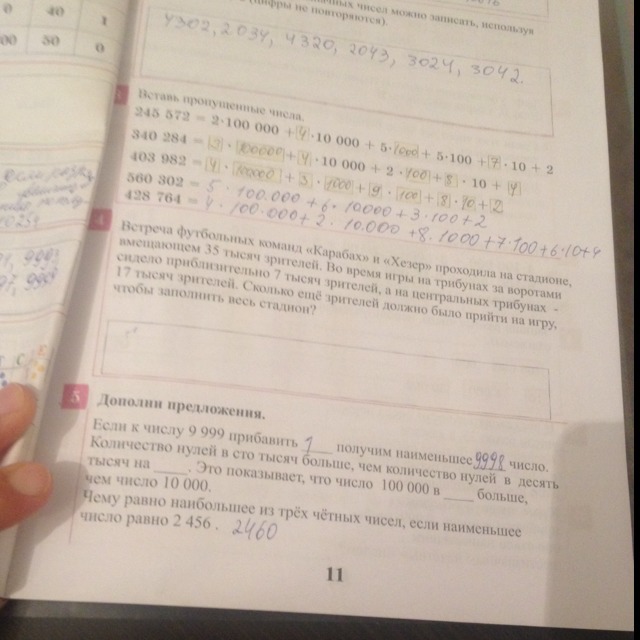 0 40 1
00 50 0
чных чисел можно записать, используя
(цифры не повторяются).
4302, 2034, 4320, 2043, 3024, 3042.
Вставь пропущенные числа.
245 572 = 2·100 000 + 4·10 000 + 5·1000 + 5·100 + 7·10 + 2
340 284 = 3·100000 + 4·10 000 + 2·100 + 8·10 + 4
403 982 = 4·100000 + 3·1000 + 9·100 + 8·10 + 2
560 302 = 5·100.000 + 6·10.000 + 3·100 + 2
428 764 = 4·100.000 + 2·10.000 + 8·1000 + 7·100 + 6·10 + 4
4
Встреча футбольных команд «Карабах» и «Хезер» проходила на стадионе,
вмещающем 35 тысяч зрителей. Во время игры на трибунах за воротами
сидело приблизительно 7 тысяч зрителей, а на центральных трибунах -
17 тысяч зрителей. Сколько ещё зрителей должно было прийти на игру,
чтобы заполнить весь стадион?
5
Дополни предложения.
Если к числу 9 999 прибавить 1 получим наименьшее 9998 число.
Количество нулей в сто тысяч больше, чем количество нулей в десять
тысяч на ____. Это показывает, что число 100 000 в ____ больше,
чем число 10 000.
Чему равно наибольшее из трёх чётных чисел, если наименьшее
число равно 2 456 . 2460
11